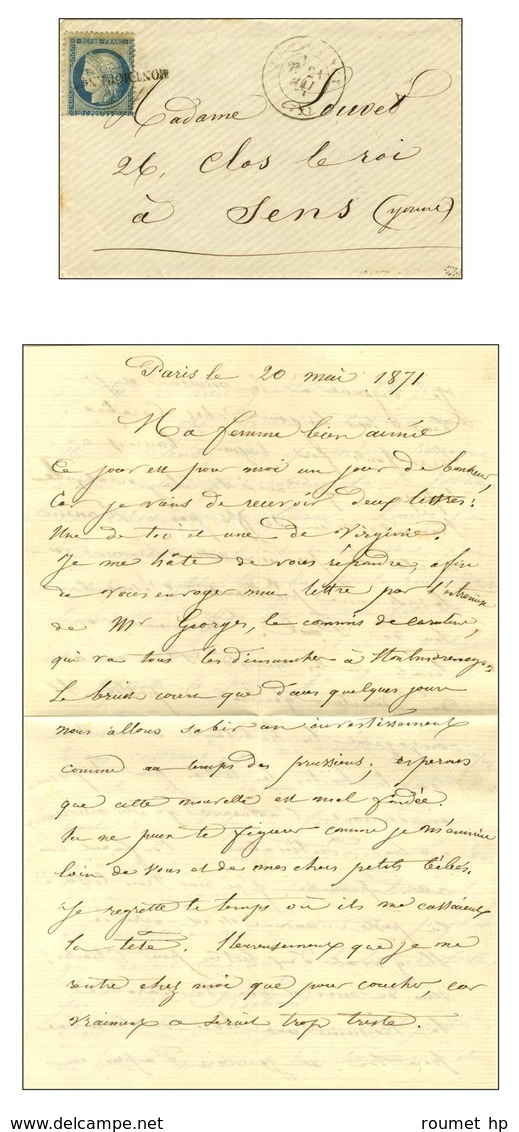 REPUB. FRANC.
Madame Louvet
26, Clos le roi
à Sens (yonne)
Paris le 20 mai 1871
Ma femme bien aimée
Ce jour est pour moi un jour de bonheur,
Car je viens de recevoir deux lettres:
Une de toi et une de Virginie.
Je me hâte de vous répondre, afin
de vous envoyer ma lettre par l'entremise
de Mr Georges, le commis de Caroline,
qui va tous les dimanches à
Le bruit coure que dans quelques jours
nous allons subir un investissement
comme au temps des prussiens, esperons
que cette nouvelle est mal fondée.
Tu ne peux te figurer comme je m'ennuie
loin de vous et de mes chers petits bébés.
Je regrette le temps où ils me cassaient
la tête. Heureusement que je ne
rentre chez moi que pour coucher, car
vraiment ce serait trop triste.
roumet hp